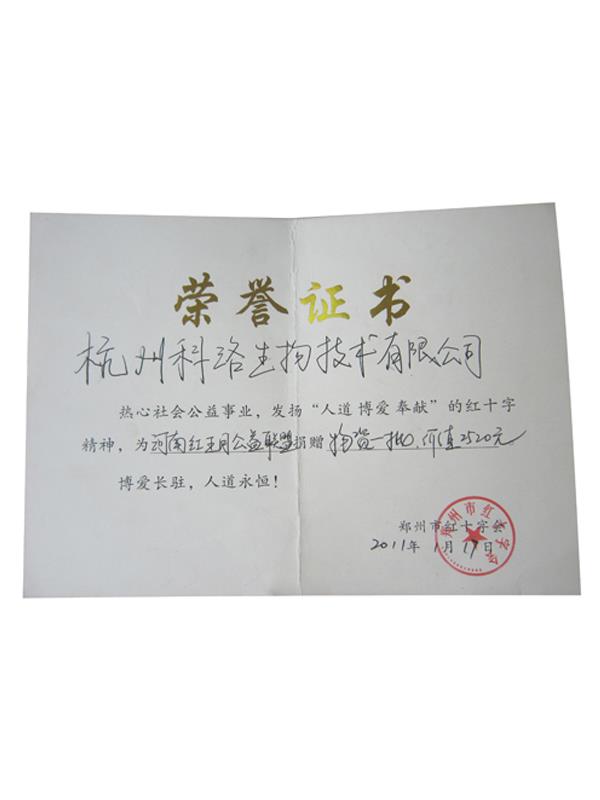 荣誉证书
杭州科洛生物技术有限公司
热心社会公益事业，发扬“人道 博爱 奉献”的红十字
精神，为河南红五月公益联盟捐赠物资一批、价值2520元
博爱长驻，人道永恒！
郑州市红十字会
2011年1月19日
郑州市红十字会